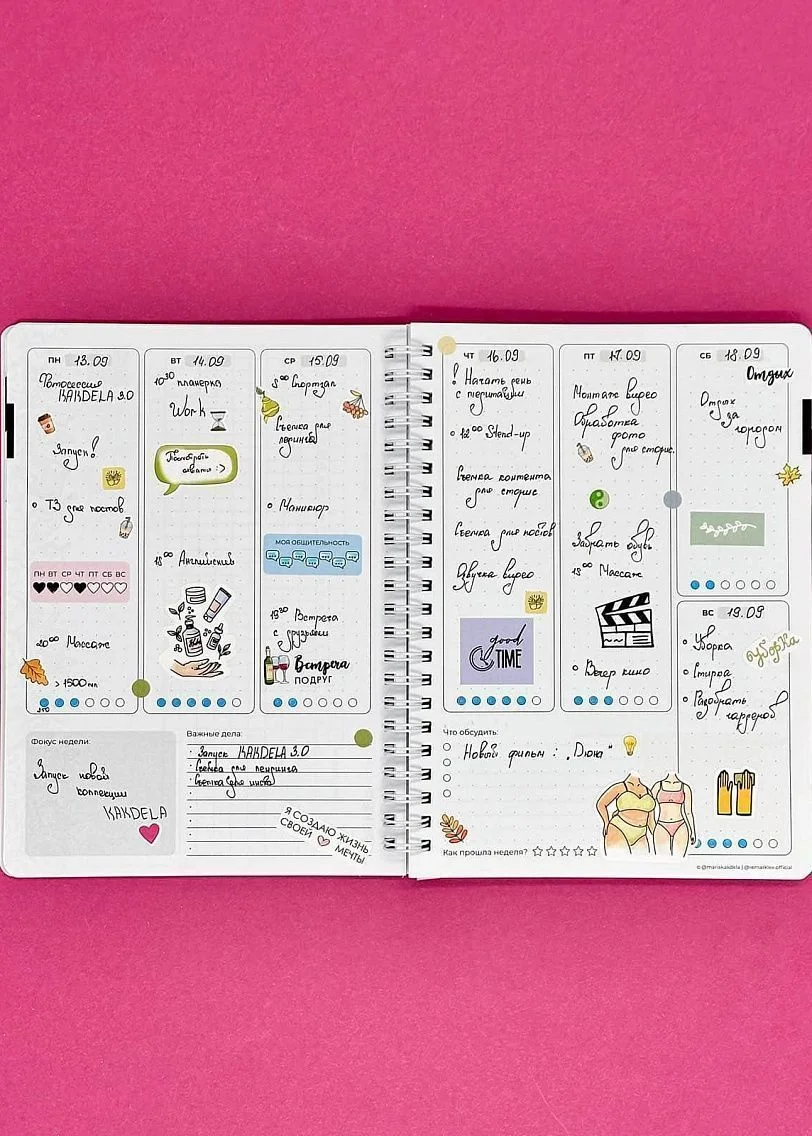 ПН 13.09
Фотосессия
KAKDELA 3.0
Запуск!
ТЗ для постов
ПН ВТ СР ЧТ ПТ СБ ВС
20⁰⁰ Массаж
> 1500 мл
ВТ 14.09
10³⁰ планерка
Work
Посмотреть
18⁰⁰ Английский
СР 15.09
Спортзал
Съемка для
лединга
Маникюр
МОЯ ОБЩИТЕЛЬНОСТЬ
19³⁰ Встреча
с друзьями
Встреча
ПОДРУГ
Фокус недели:
Запуск новой
коллекции
KAKDELA
Важные дела:
Запуск KAKDELA 3.0
Съемка для лендинга
Съемка для инста
Я СОЗДАЮ ЖИЗНЬ
СВОЕЙ МЕЧТЫ
ЧТ 16.09
! Начать день
с медитации
12⁰⁰ Stend-up
Съемка контента
для сторис
Съемка для постов
Озвучка видео
good
TIME
ПТ 17.09
Монтаж видео
Обработка
фото
для сторис.
Забрать обувь
18⁰⁰ Массаж
Вечер кино
СБ 18.09
Отдых
Отдых
за
городом
ВС 19.09
Уборка
уборка
Стирка
Разобрать
гардероб
Что обсудить:
Новый фильм : „Дюна"
Как прошла неделя?
© @mariakakdela | @remarklee.official